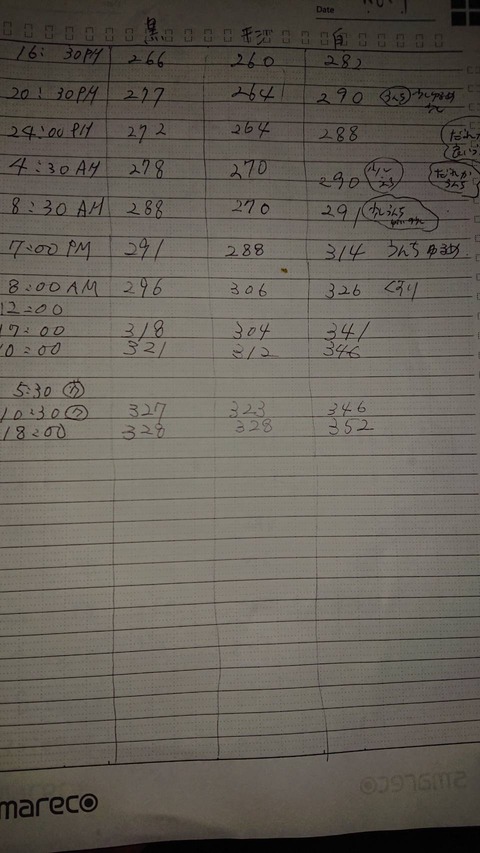 Date
黒 白
16:30PM 266 260 282
20:30PM 277 264 290 うんち
24:00PM 272 264 288
4:30AM 278 270 290 だれか うんち
8:30AM 288 270 291
7:00PM 291 288 314 うんち ゆるめ
8:00AM 296 306 326 くすり
12:00
17:00 318 304 341
10:00 321 312 346
5:30
10:30 327 323 346
18:00 328 328 352
mareco
smareco